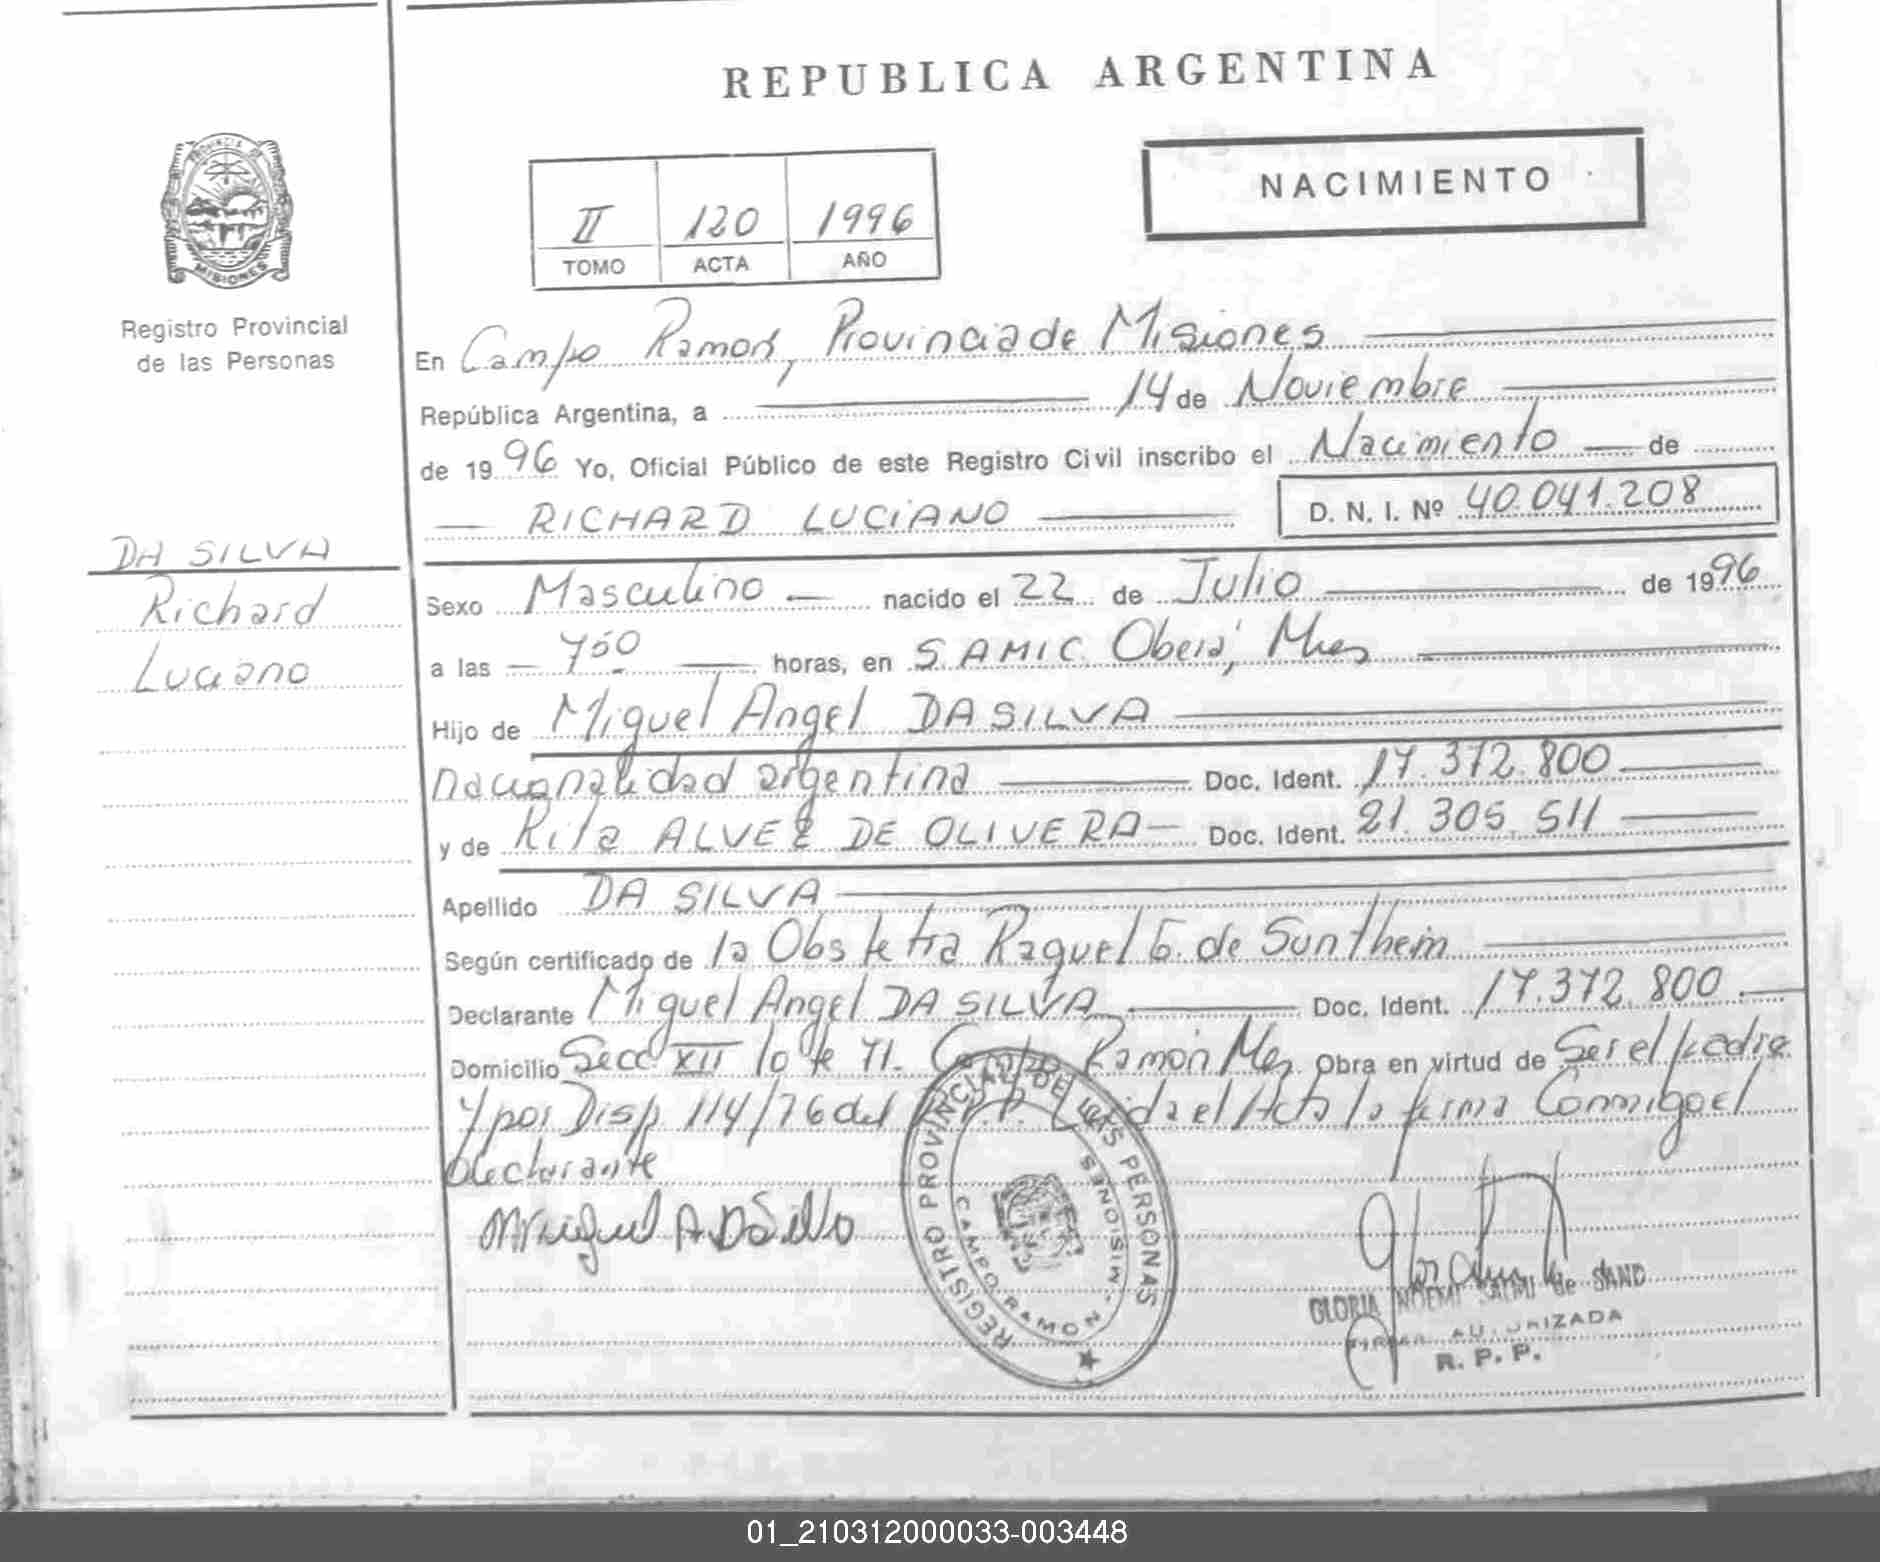 REPUBLICA ARGENTINA
NACIMIENTO
II 120 1996
TOMO ACTA AÑO
PROVINCIA DE
MISIONES
Registro Provincial
de las Personas
En Campo Ramon, Provincia de Misiones
República Argentina, a 14 de Noviembre
de 1996 Yo, Oficial Público de este Registro Civil inscribo el Nacimiento de
RICHARD LUCIANO D. N. I. Nº 40.041.208
DA SILVA
Richard
Luciano
Sexo Masculino nacido el 22 de Julio de 1996
a las 750 horas, en SAMIC Oberá, Mnes
Hijo de Miguel Angel DA SILVA
nacionalidad argentina Doc. Ident. 17.372.800
y de Rita ALVEZ DE OLIVERA Doc. Ident. 21.305.511
Apellido DA SILVA
Según certificado de la Obstetra Raquel G. de Sunthein
Declarante Miguel Angel DA SILVA Doc. Ident. 17.372.800
Domicilio Secc XII lote 71. Campo Ramón Mnes Obra en virtud de Ser el padre
y por Disp. 114/76 del R.P.P. Leida el Acta la firma Conmigo el
declarante
Miguel A. Da Silva
REGISTRO PROVINCIAL DE LAS PERSONAS
CAMPO RAMON - MISIONES
GLORIA NOEMI de SAND
FIRMA AUTORIZADA
R. P. P.
01_210312000033-003448